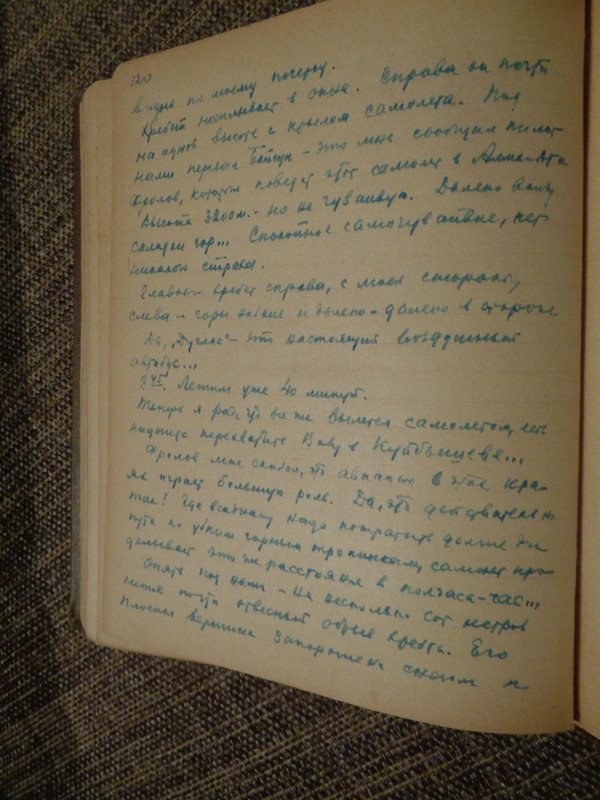 120
видно по моему почерку.
Хребет наплывает в окна. Справа он почти
на одной высоте с крылом самолета. Под
нами перевал Байсун - это мне сообщил пилот
Фролов, который поведет этот самолет в Алма-Ата.
Высота 3200м. - но не чувствую. Далеко внизу
складки гор... Спокойное самочувствие, нет
никакого страха.
Главный хребет справа, с моей стороны,
слева - горы ниже и далеко-далеко в стороне
Да, "Дуглас" - это настоящий воздушный
автобус...
8.45. Летим уже 40 минут.
Теперь я рад, что все же вылетел самолетом, есть
надежда перехватить Вову в Куйбышеве...
Фролов мне сказал, что авиация в этих кра-
ях играет большую роль. Да, это действительно
так! Где всаднику надо потратить долгие дни
пути по узким горным тропинкам, самолет про-
делывает это же расстояние в полчаса-час...
Опять под нами - на несколько сот метров
ниже почти отвесный обрыв хребта. Его
плоская вершина запорошена снегом и